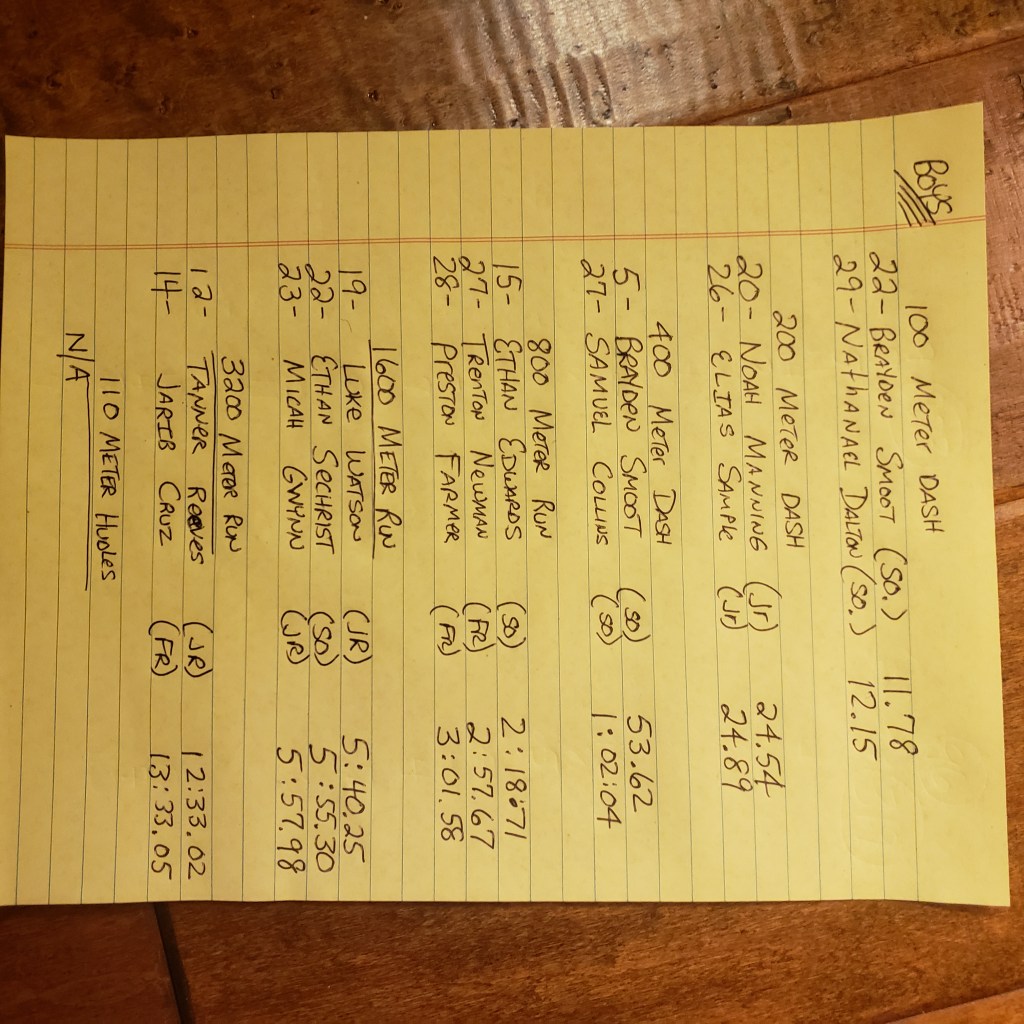 BOYS
100 METER DASH
22- BRAYDEN SMOOT (SO.) 11.78
29- NATHANAEL DALTON (SO.) 12.15
200 METER DASH
20- NOAH MANNING (Jr) 24.54
26- ELIAS SAMPLE (Jr) 24.89
400 METER DASH
5- BRAYDEN SMOOT (SO) 53.62
27- SAMUEL COLLINS (SO) 1:02:04
800 METER RUN
15- ETHAN EDWARDS (SO) 2:18:71
27- TRENTON NEWMAN (FR) 2:57.67
28- PRESTON FARMER (FR) 3:01.58
1600 METER RUN
19- LUKE WATSON (JR) 5:40.25
22- ETHAN SECHRIST (SO) 5:55.30
23- MICAH GWYNN (JR) 5:57.98
3200 METER RUN
12- TANNER REEVES (JR) 12:33.02
14- JARIB CRUZ (FR) 13:33.05
110 METER HURDLES
N/A